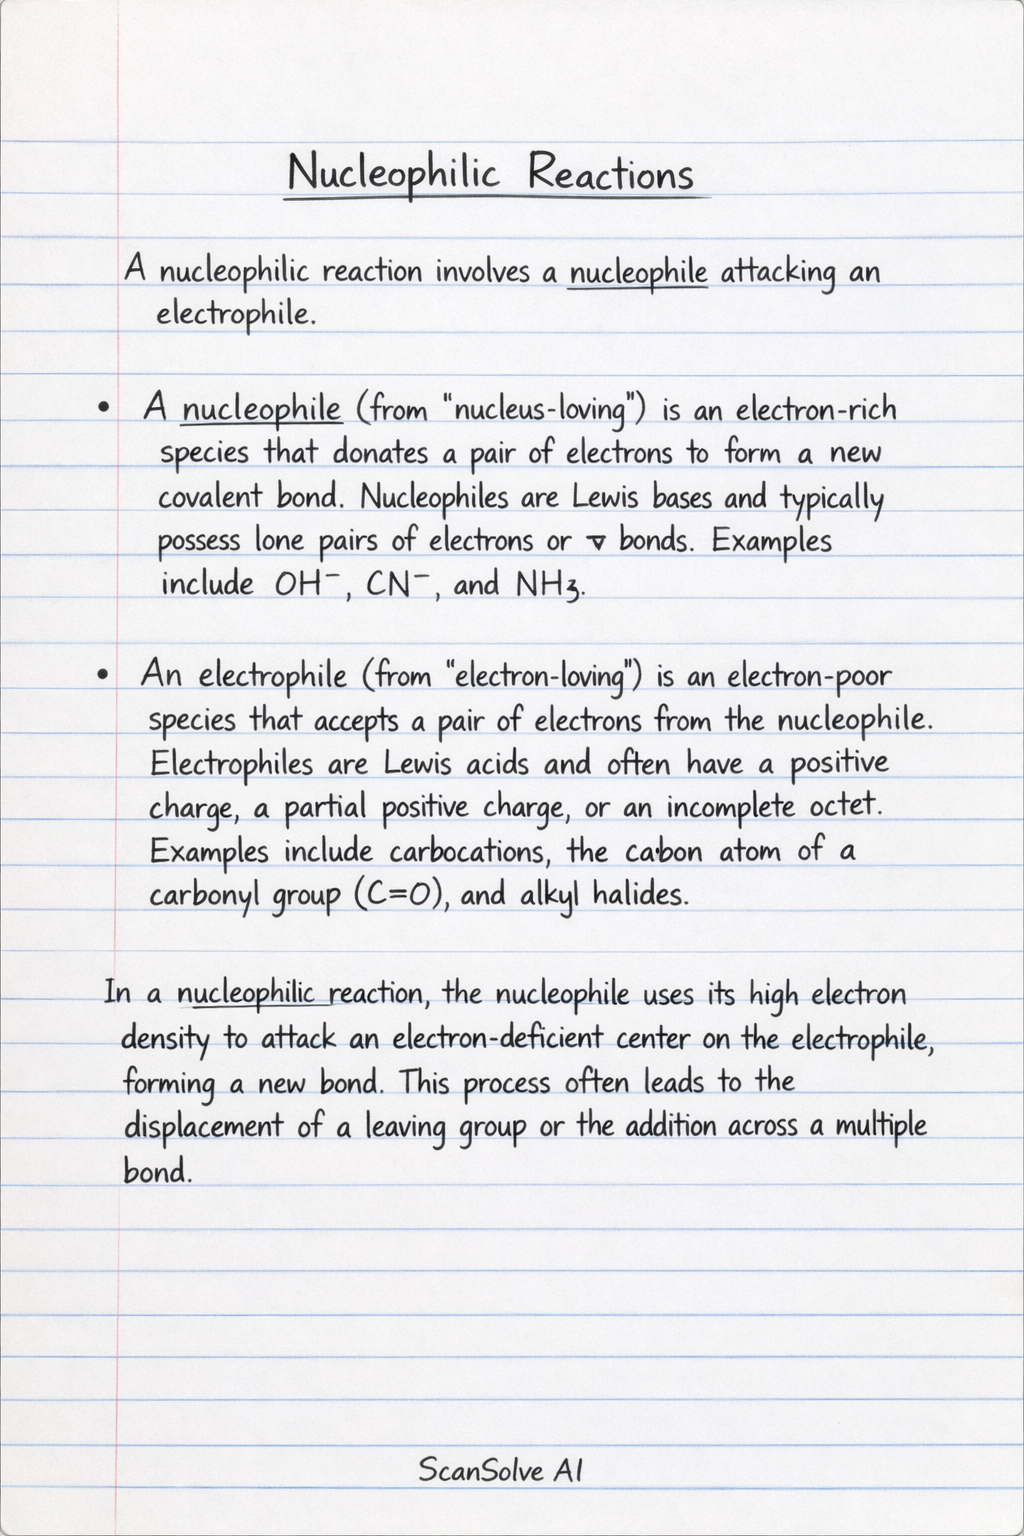 Nucleophilic Reactions
A nucleophilic reaction involves a nucleophile attacking an
electrophile.
• A nucleophile (from "nucleus-loving") is an electron-rich
species that donates a pair of electrons to form a new
covalent bond. Nucleophiles are Lewis bases and typically
possess lone pairs of electrons or ▽ bonds. Examples
include OH⁻, CN⁻, and NH₃.
• An electrophile (from "electron-loving") is an electron-poor
species that accepts a pair of electrons from the nucleophile.
Electrophiles are Lewis acids and often have a positive
charge, a partial positive charge, or an incomplete octet.
Examples include carbocations, the cabon atom of a
carbonyl group (C=O), and alkyl halides.
In a nucleophilic reaction, the nucleophile uses its high electron
density to attack an electron-deficient center on the electrophile,
forming a new bond. This process often leads to the
displacement of a leaving group or the addition across a multiple
bond.
ScanSolve AI